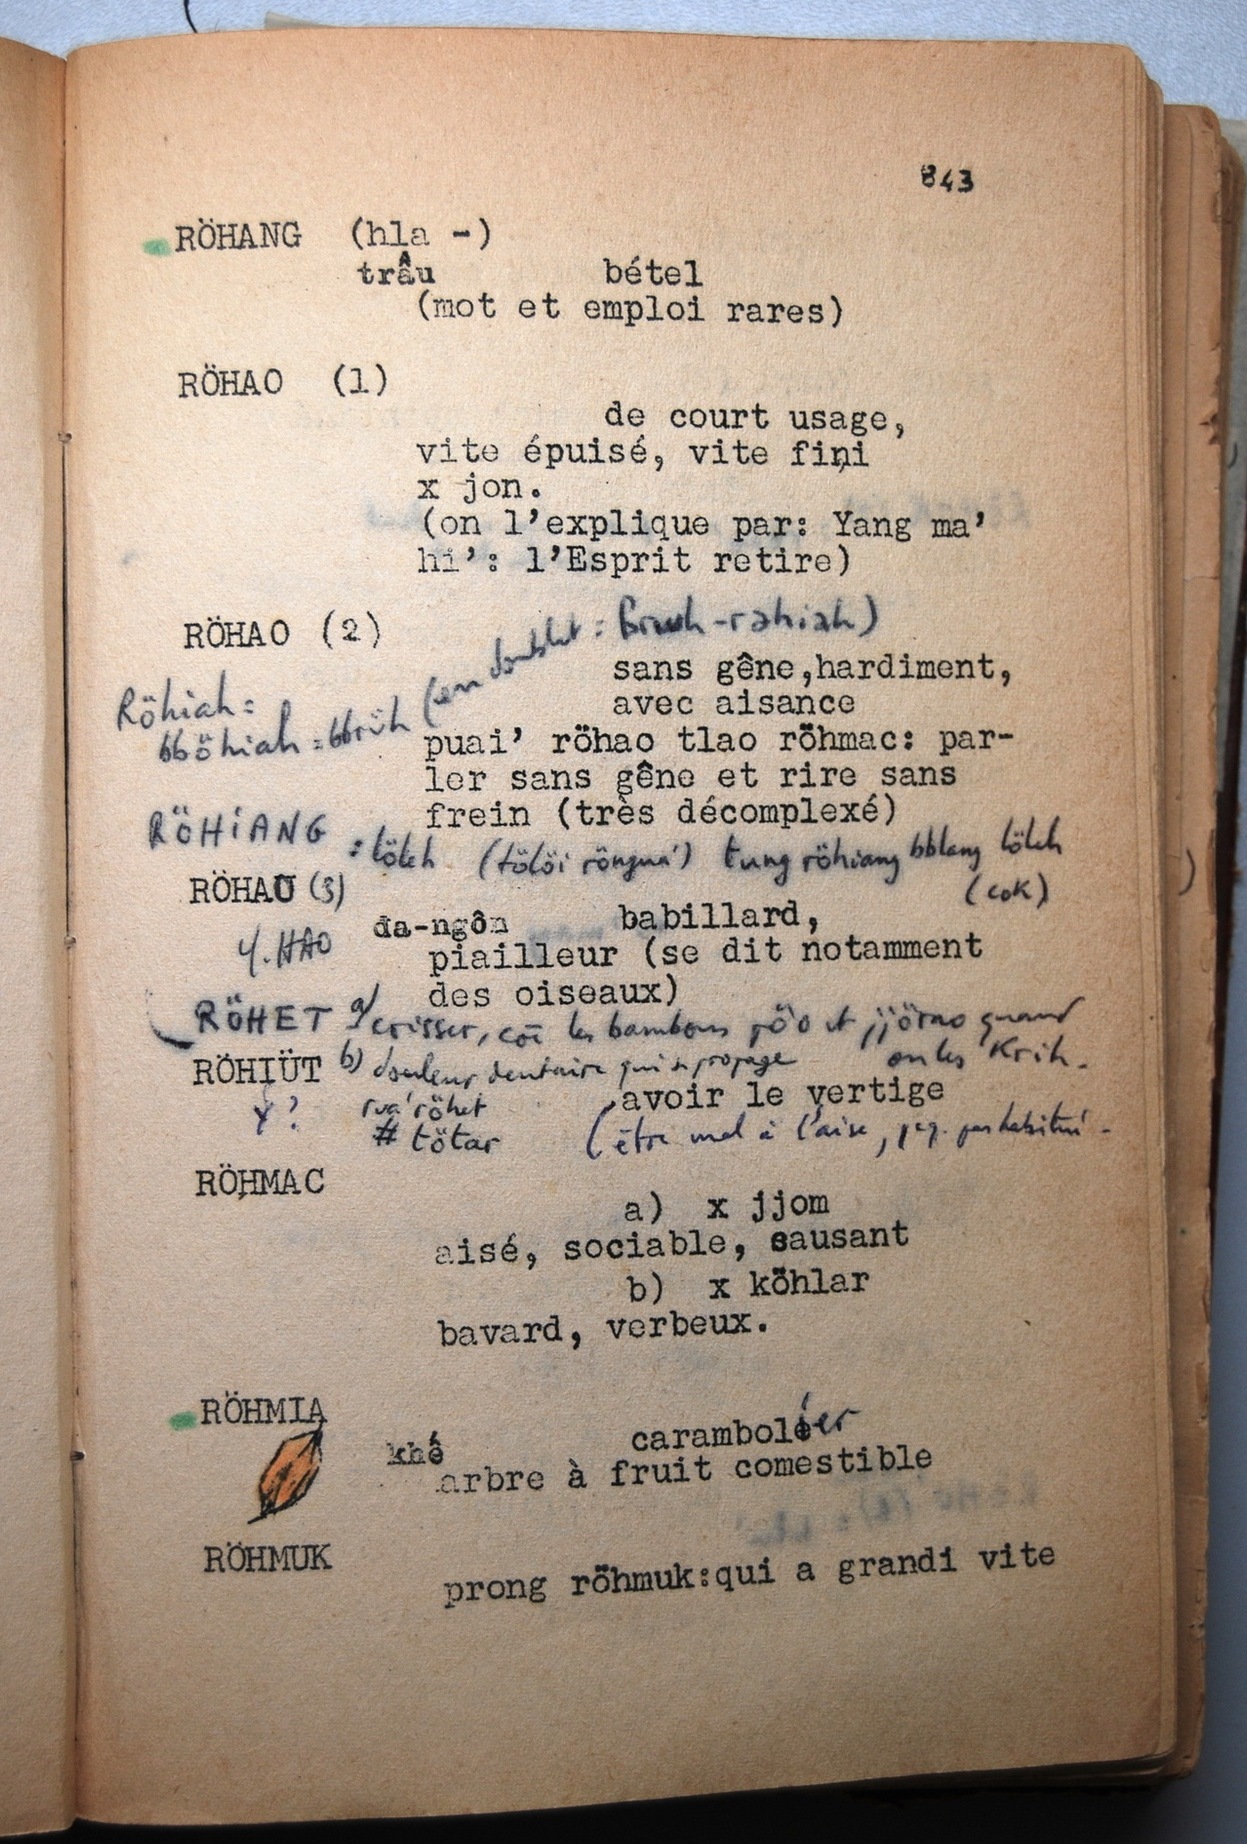 843
RÖHANG (hla -)
trâu bétel
(mot et emploi rares)
RÖHAO (1)
de court usage,
vite épuisé, vite fini
x jon.
(on l'explique par: Yang ma'
hi': l'Esprit retire)
RÖHAO (2)
(en doublet : -rahiah)
sans gêne,hardiment,
Röhiah =
avec aisance
bböhiah = bbrüh
puai' röhao tlao röhmac: par-
ler sans gêne et rire sans
frein (très décomplexé)
RÖHIANG : töleh (tölöi röngua') tung röhiang bblang töleh
(cok)
RÖHAU (3)
đa-ngôn babillard,
Y. HAO
piailleur (se dit notamment
des oiseaux)
RÖHET a) crisser, cõ les bambous pö'ö et jjörao quand
on les Krih.
RÖHIÜT b) douleur dentaire qui se propage
avoir le vertige
Y ? rua' röhet
# tötar (être mal à l'aise, pcq. pas habitué -
RÖHMAC
a) x jjom
aisé, sociable, causant
b) x köhlar
bavard, verbeux.
RÖHMIA
khê carambolier
arbre à fruit comestible
RÖHMUK
prong röhmuk:qui a grandi vite